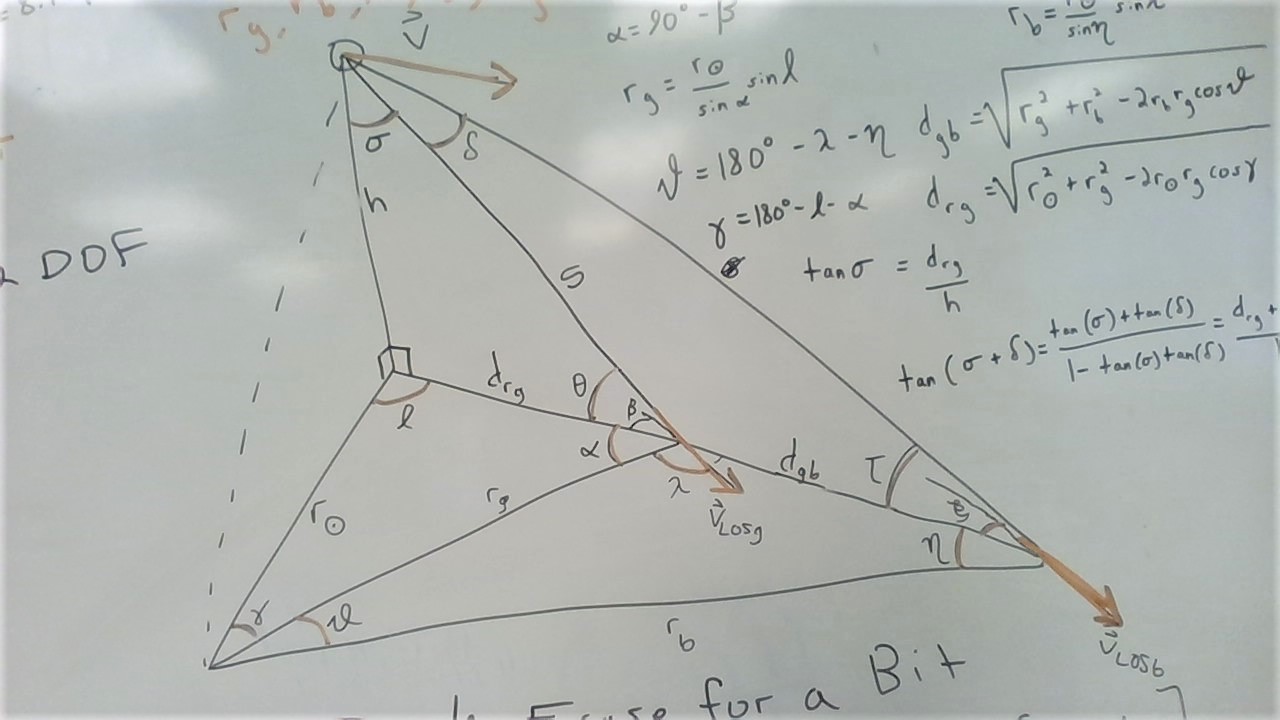 r_g, r_b,
V⃗
α = 90° - β
r_b = r_⊙/sinη sinλ
r_g = r_⊙/sinα sin l
ϑ = 180° - λ - η
d_gb = √(r_g² + r_b² - 2r_b r_g cosϑ)
γ = 180° - l - α
d_rg = √(r_⊙² + r_g² - 2r_⊙ r_g cosγ)
tanσ = d_rg/h
tan(σ + δ) = (tan(σ) + tan(δ))/(1 - tan(σ)tan(δ)) = d_rg +
DOF
σ
δ
h
S
d_rg
θ
β
l
α
d_gb
τ
ξ
r_⊙
r_g
λ
V⃗_LOSg
η
γ
ϑ
r_b
V⃗_LOSb
for a Bit